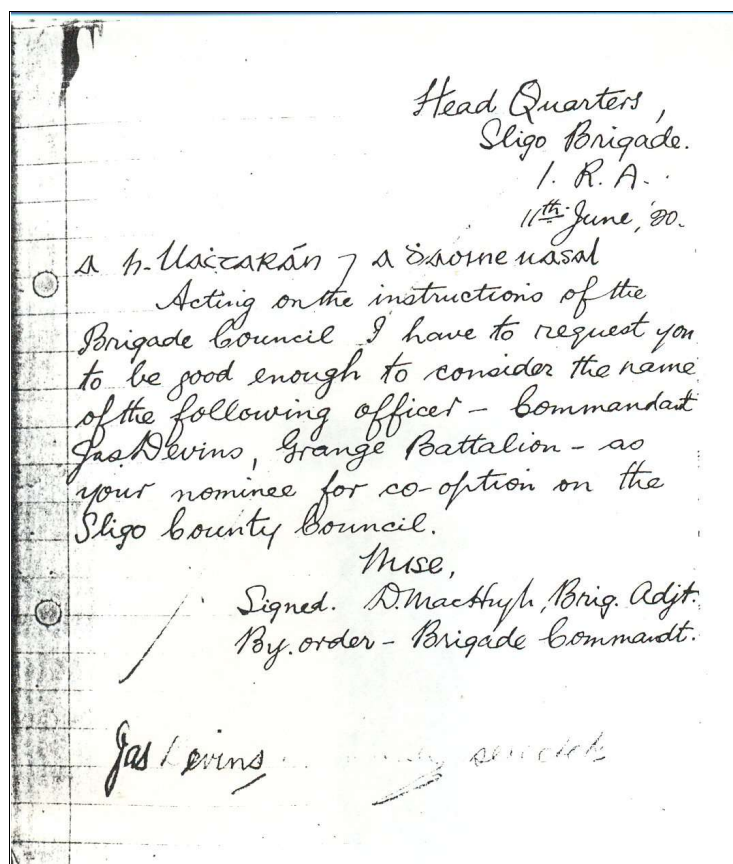 Head Quarters,
Sligo Brigade.
I. R. A.
11th June, '20.
A h-Uaċtaráin ⁊ a ḋaoine uasal
Acting on the instructions of the
Brigade Council I have to request you
to be good enough to consider the name
of the following officer – Commandant
Jas. Devins, Grange Battalion – as
your nominee for co-option on the
Sligo County Council.
Mise,
Signed. D. MacHugh, Brig. Adjt.
By. order – Brigade Commandt.
Jas Devins